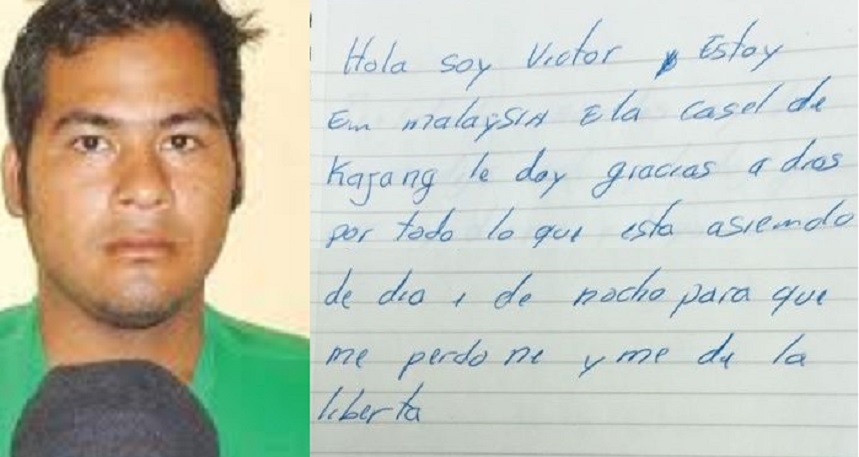 Hola soy Victor y Estoy
Em malaysIA E la casel de
Kajang le doy gracias a dios
por todo lo que esta asiemdo
de dia i de noche para que
me perdo ne y me de la
liberta